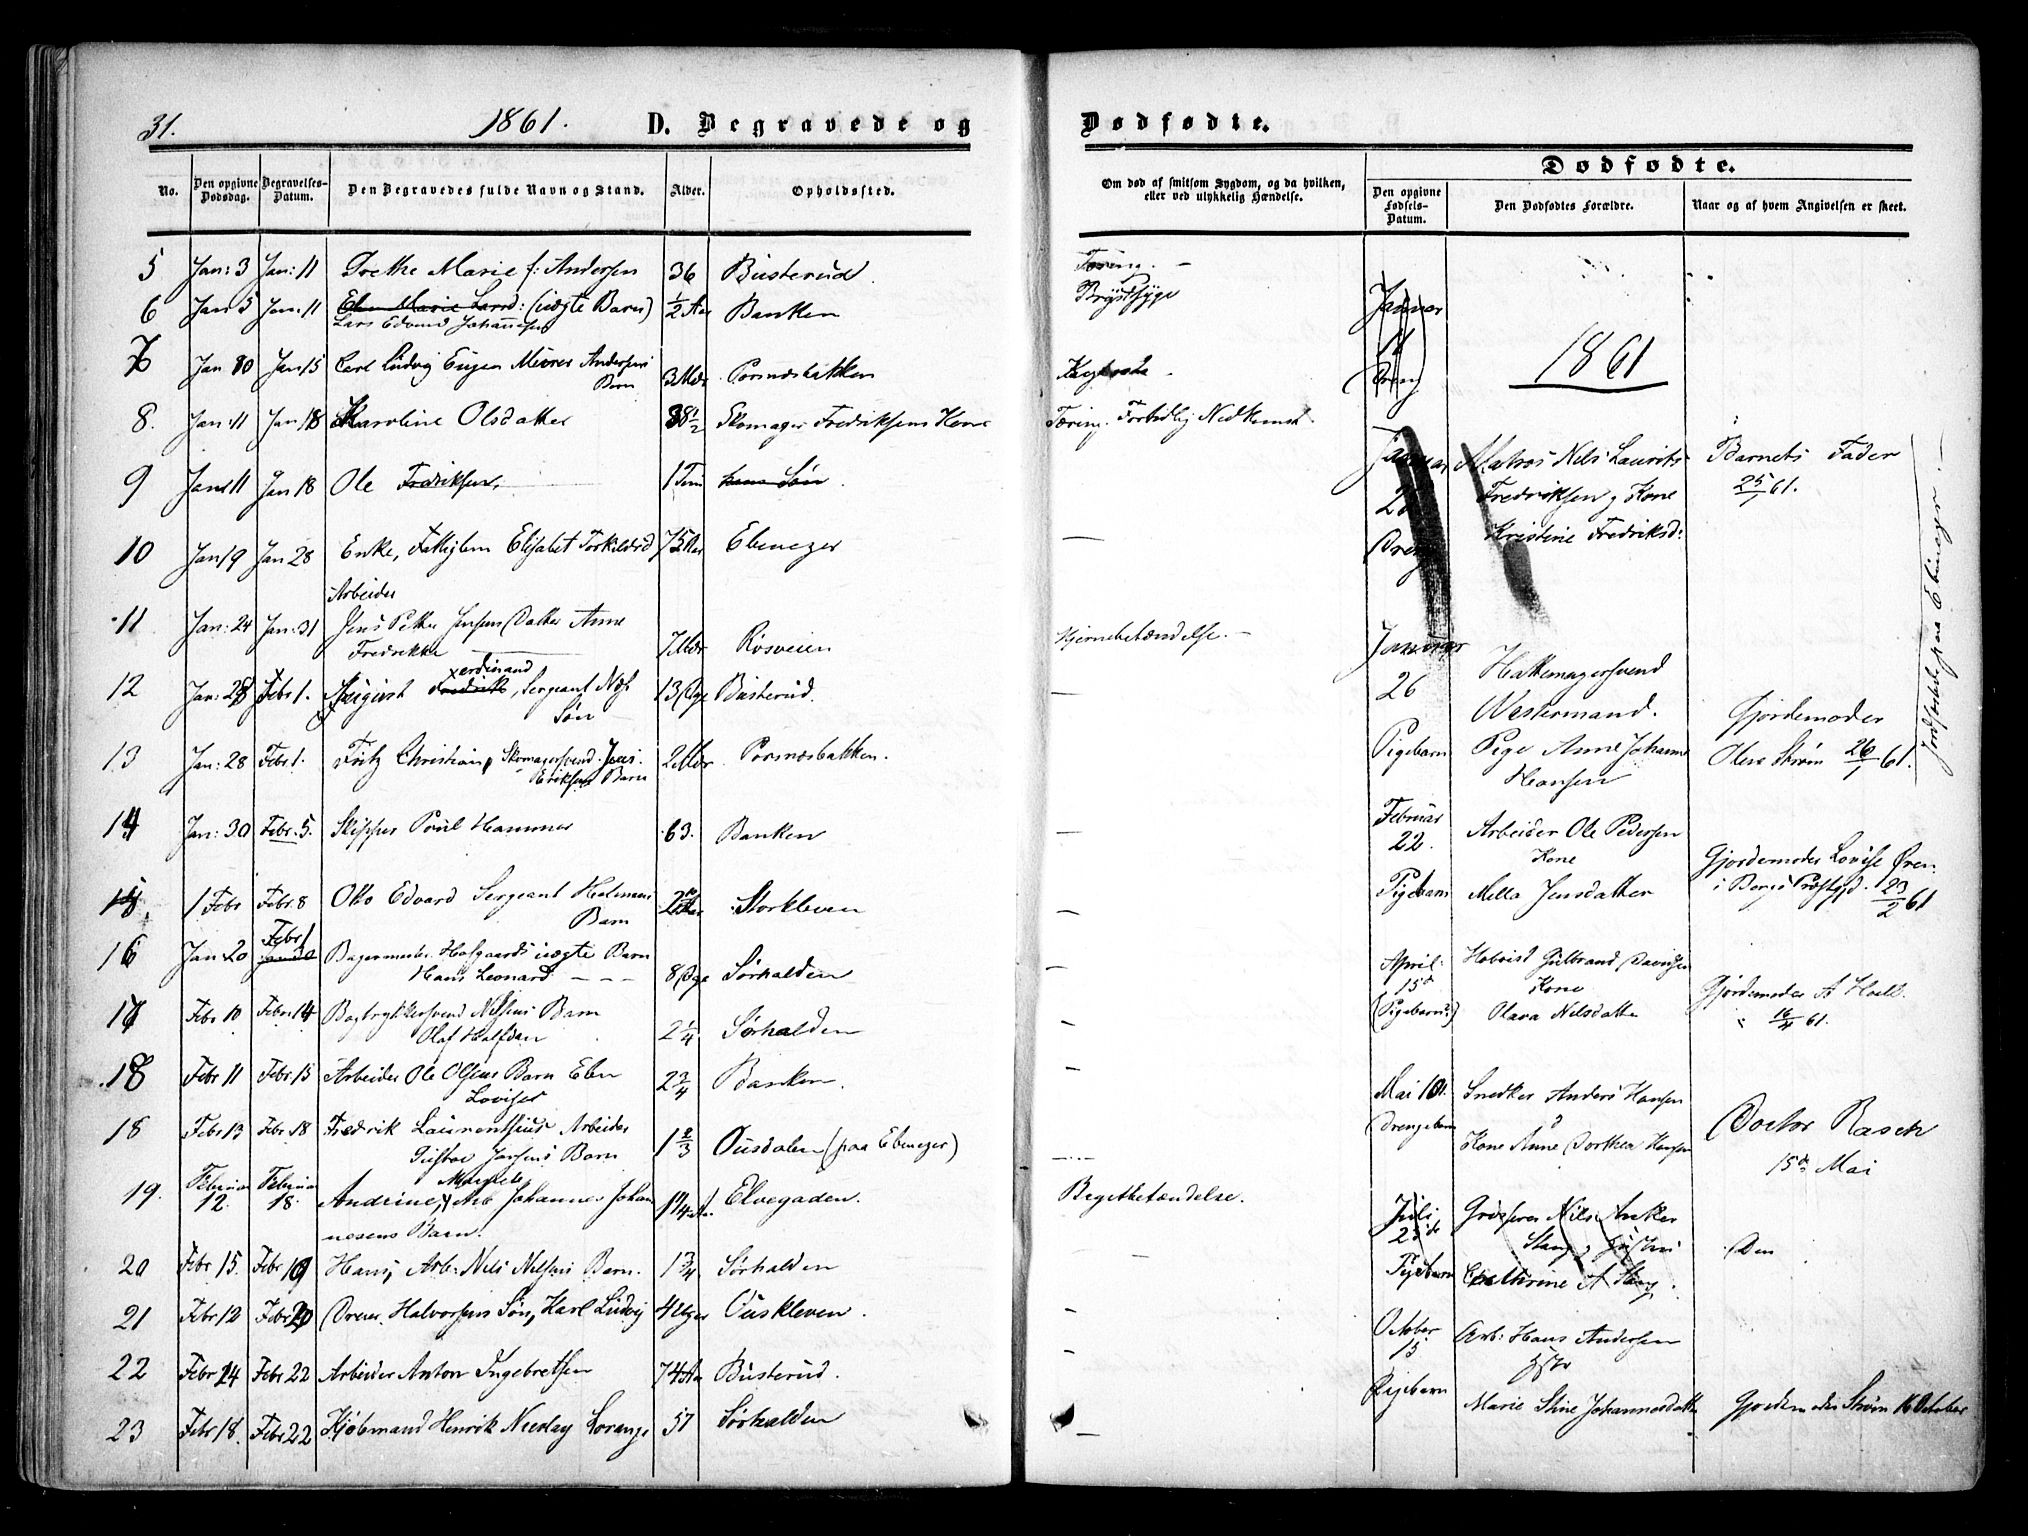 31.
1861.
D. Begravede og
No.
Den opgivne Dødsdag.
Begravelses-Datum.
Den Begravedes fulde Navn og Stand.
Alder.
Opholdssted.
5 Jan: 3 Jan: 11 Grethe Marie f: Andersen 36 Busterud.
6 Jan 5 Jan: 11 Elen Marie Larsd: (uægte Barn) 1/2 Aar Banken
Lars Edvard Johannesen
7 Jan 10 Jan 15 Carl Ludvig Eugen Murer Andersens
Barn 3 Mdr
8. Jan: 11 Jan 18 Karoline Olsdatter 38 1/2 Skomager Fredriksens Kone
9 Jan 11 Jan 18 Ole Fredriksen, 1 Time hans Søn.
10 Jan 19 Jan 28 Enke, Fattiglem Elisabet Torkildsd 75 Aar Ebenezer
Arbeider
11 Jan: 24 Jan: 31 Jens Petter Jensens Datter Anne
Fredrikke 7 Mdr Røsveien
erdinand
12 Jan: 28 Febr 1. August Fredrik, Sergeant Næs' 13 Dge Busterud.
Søn
13 Jan: 28 Febr 1. Fritz Christian, Skomagersvend Jens 2 Mdr
Eriksens Barn
14 Jan: 30 Febr. 5. Skipper Poul Hammer 63. Banken
15. 1 Febr Febr 8 Otto Edvard Sergeant
Barn Storkleven
Febr 1
16 Jan 20 Bagermester Hofgaards uægte Barn
Hans Leonard 8 Dge Sørhalden
17 Febr 10 Febr 14 Bogtrykkersvend Nilsens Barn
Olaf Halfdan 2 1/4 Sørhalden
18 Febr 11 Febr 15 Arbeider Ole Olsens Barn Elen
Lovise 2 3/4 Banken.
18 Febr 13 Febr 18 Fredrik Laurentsius Arbeider
Gustav Jansens Barn 1 2/3 Ousdalen (paa Ebenezer)
Februar Februar Mathilde
19. 12. 18. Andrine, Arb Johannes Johan Elvegaden.
nesens Barn.
20 Febr 15. Febr 19 Hans, Arb: Nils Nilsens Barn. 1 3/4 Sørhalden
21 Febr 12 Febr 20 Dreier Halvorsens Søn, Karl Ludvig 4 Uger Ouskleven.
22 Febr 14 Febr 22 Arbeider Anton Ingebretsen 74 Aar Busterud.
23 Febr 18. Febr 22 Kjøbmand Henrik Nicolay Lorange 57 Sørhalden
Dødfødte.
Om død af smitsom Sygdom, og da hvilken,
eller ved ulykkelig Hændelse.
Dødfødte.
Den opgivne Fødsels-Datum.
Den Dødfødtes Forældre.
Naar og af hvem Angivelsen er skeet.
Tæring. –
Brystsyge
Kighoste.
Tæring. Fortidlig Nedkomst.
Hjernebetændelse. –
Brystbetændelse.
Januar
11
Dreng
1861
Januar
Dreng
Matros Nils Laurits
Fredriksen og Kone
Kristine Fredriksd:
Barnets Fader
25/1 61.
Januar
26
Pigebarn
Hattemagersvend
Westermand.
Pige Anne Johanne
Hansen
Gjordemoder
Olava Strøm 26/1 61.
Jordfæstet paa Ebenezer. –
Februar
22.
Pigebarn
Arbeider Ole Pedersen
Kone
Mella Jensdatter
Gjordemoder Lovise Øren
i Bergs Præstgjd. 23/2 61
April:
15de
(Pigebarn)
Gulbrand Davidsen
Kone
Olava Nilsdatter
Gjordemoder A Holt.
16/4 61.
Mai 10.
Drengebarn
Snedker Anders Hansen
Kone Anne Dorthea Hansen
Doctor Rasch
15de Mai
Juli
Pigebarn
Grosserer Nils Anker
Stang og Hustru
Cathrine A Stang.
Den
October
15
Pigebarn
Arb: Hans Andersen
Hstr
Marie Stine Johannesdatter
Gjordemoder Strøm 16 October